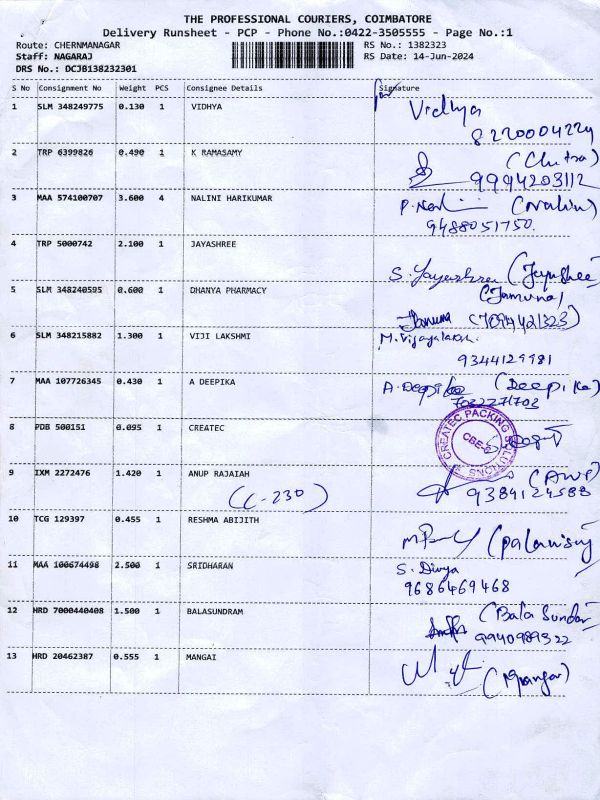 THE PROFESSIONAL COURIERS, COIMBATORE
Delivery Runsheet - PCP - Phone No.:0422-3505555 - Page No.:1
Route: CHERNMANAGAR RS No.: 1382323
Staff: NAGARAJ RS Date: 14-Jun-2024
DRS No.: DCJB138232301
S No Consignment No Weight PCS Consignee Details Signature
1 SLM 348249775 0.130 1 VIDHYA for Vidhya
8220004229
2 TRP 6399826 0.490 1 K RAMASAMY (Chitra)
9994203112
3 MAA 574100707 3.600 4 NALINI HARIKUMAR (Nalini)
9488051750.
4 TRP 5000742 2.100 1 JAYASHREE S. Jayashree (Jayashree)
5 SLM 348240595 0.600 1 DHANYA PHARMACY (Jamuna)
Jamuna (7094421323)
6 SLM 348215882 1.300 1 VIJI LAKSHMI
9344129981
7 MAA 107726345 0.430 1 A DEEPIKA A. Deepika (Deepika)
8 PDB 500151 0.095 1 CREATEC CREATEC PACKING SOLUTIONS
9 IXM 2272476 1.420 1 ANUP RAJAIAH (C-230)
9384124588
10 TCG 129397 0.455 1 RESHMA ABIJITH
11 MAA 100674498 2.500 1 SRIDHARAN S. Divya
9686469468
12 HRD 7000440408 1.500 1 BALASUNDRAM (Bala Sundar
9940989322
13 HRD 20462387 0.555 1 MANGAI